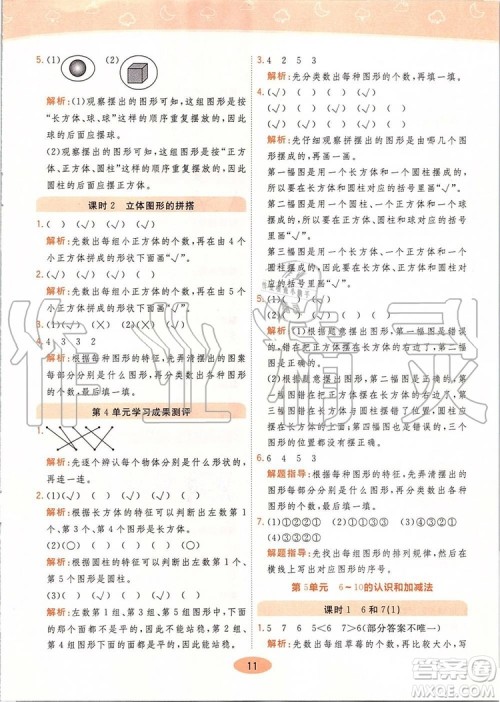 5.(1) (2)
解析:(1)观察摆出的图形可知,这组图形是
按“长方体、球、球”这样的顺序重复摆放的,因
此球的后面应摆球。
(2)观察摆出的图形可知,这组图形是按“正方
体、正方体、圆柱”这样的顺序重复摆放的,因
此圆柱的后面应摆正方体。
课时2 立体图形的拼搭
1.( ) (√) ( )
解析:先数出每组小正方体的个数,再在由4个
小正方体拼成的形状下面画“√”。
2.( ) (√) ( ) ( )
解析:先数出每组小正方体的个数,再在与其他
小正方体拼成的形状不同的下面画“√”。
3.(√) (√) (×) (×)
4.4 3 3 2
解析:根据图形的特征,先弄清摆出的图案
都是由哪几种图形组成的,再分类数出每种
图形的个数,最后填一填。
第4单元学习成果测评
1.
解析:先逐个辨认每个物体分别是什么形状的,
再连一连。
2.(1)(√) (√) ( ) (√) ( )
解析:根据长方体的特征可以判断出左数第1
个、第2个、第4个图形是长方体。
(2)(○) ( ) ( ) (○) ( )
解析:根据圆柱的特征可以判断出左数第1个、
第4个图形是圆柱。
(3)( ) ( ) ( ) (√)
解析:左数第1组、第2组、第3组图形上、下两
个面都是平的,因此能站稳。第4组图形上、下
两个面不都是平的,因此不能站稳。
3.4 2 5 3
解析:先分类数出每种图形的个数,再填一填。
4.(1)(√) (√) ( ) ( )
(2)( ) (√) (√) ( )
解析:先仔细观察拼摆出的图形是由哪几个图
形摆成的,再画一画。
第一幅图是用1个长方体和1个圆柱摆成的,
所以要在长方体和圆柱对应的括号里画
“√”。
第二幅图是用2个长方体和1个圆柱摆成的,
所以要在长方体和圆柱对应的括号里画
“√”。
第三幅图是用1个圆柱和1个正方体摆成的,
所以要在圆柱和正方体对应的括号里画“√”。
第四幅图是用1个长方体和2个圆柱摆成的,
所以要在长方体和圆柱对应的括号里画“√”。
5.(1)( ) (√) ( ) ( )
解析:(1)根据题意摆出的第一幅图是错误的,
错在把正方体摆在长方体的上面了。第三幅图
是错误的,错在把球摆在圆柱上面了。第四幅
图是错误的,错在把正方体摆在圆柱上面了。
(2)根据题意摆出的第二幅图、第三幅图和第四
幅图都是错误的,都错在把圆柱摆在长方体的
上面了。
6.3 2 5 3
解题指导:根据图形的特征,先弄清摆出的图形
分别是什么图形,再分类数出每种图形的个数,
最后填一填。
7.(1)①②②① (2)④③②①
(3)②①②①
解题指导:先找出图形的排列规律,然后在
横线上填上对应图形的序号。
第5单元 6~10的认识和加减法
课时1 6和7(1)
1.5 7 6 5<6 7>6(部分答案不唯一)
解析:先数出每组草莓的个数,再比较大小,写
11
作业精灵
答案圈
MXQE.COM